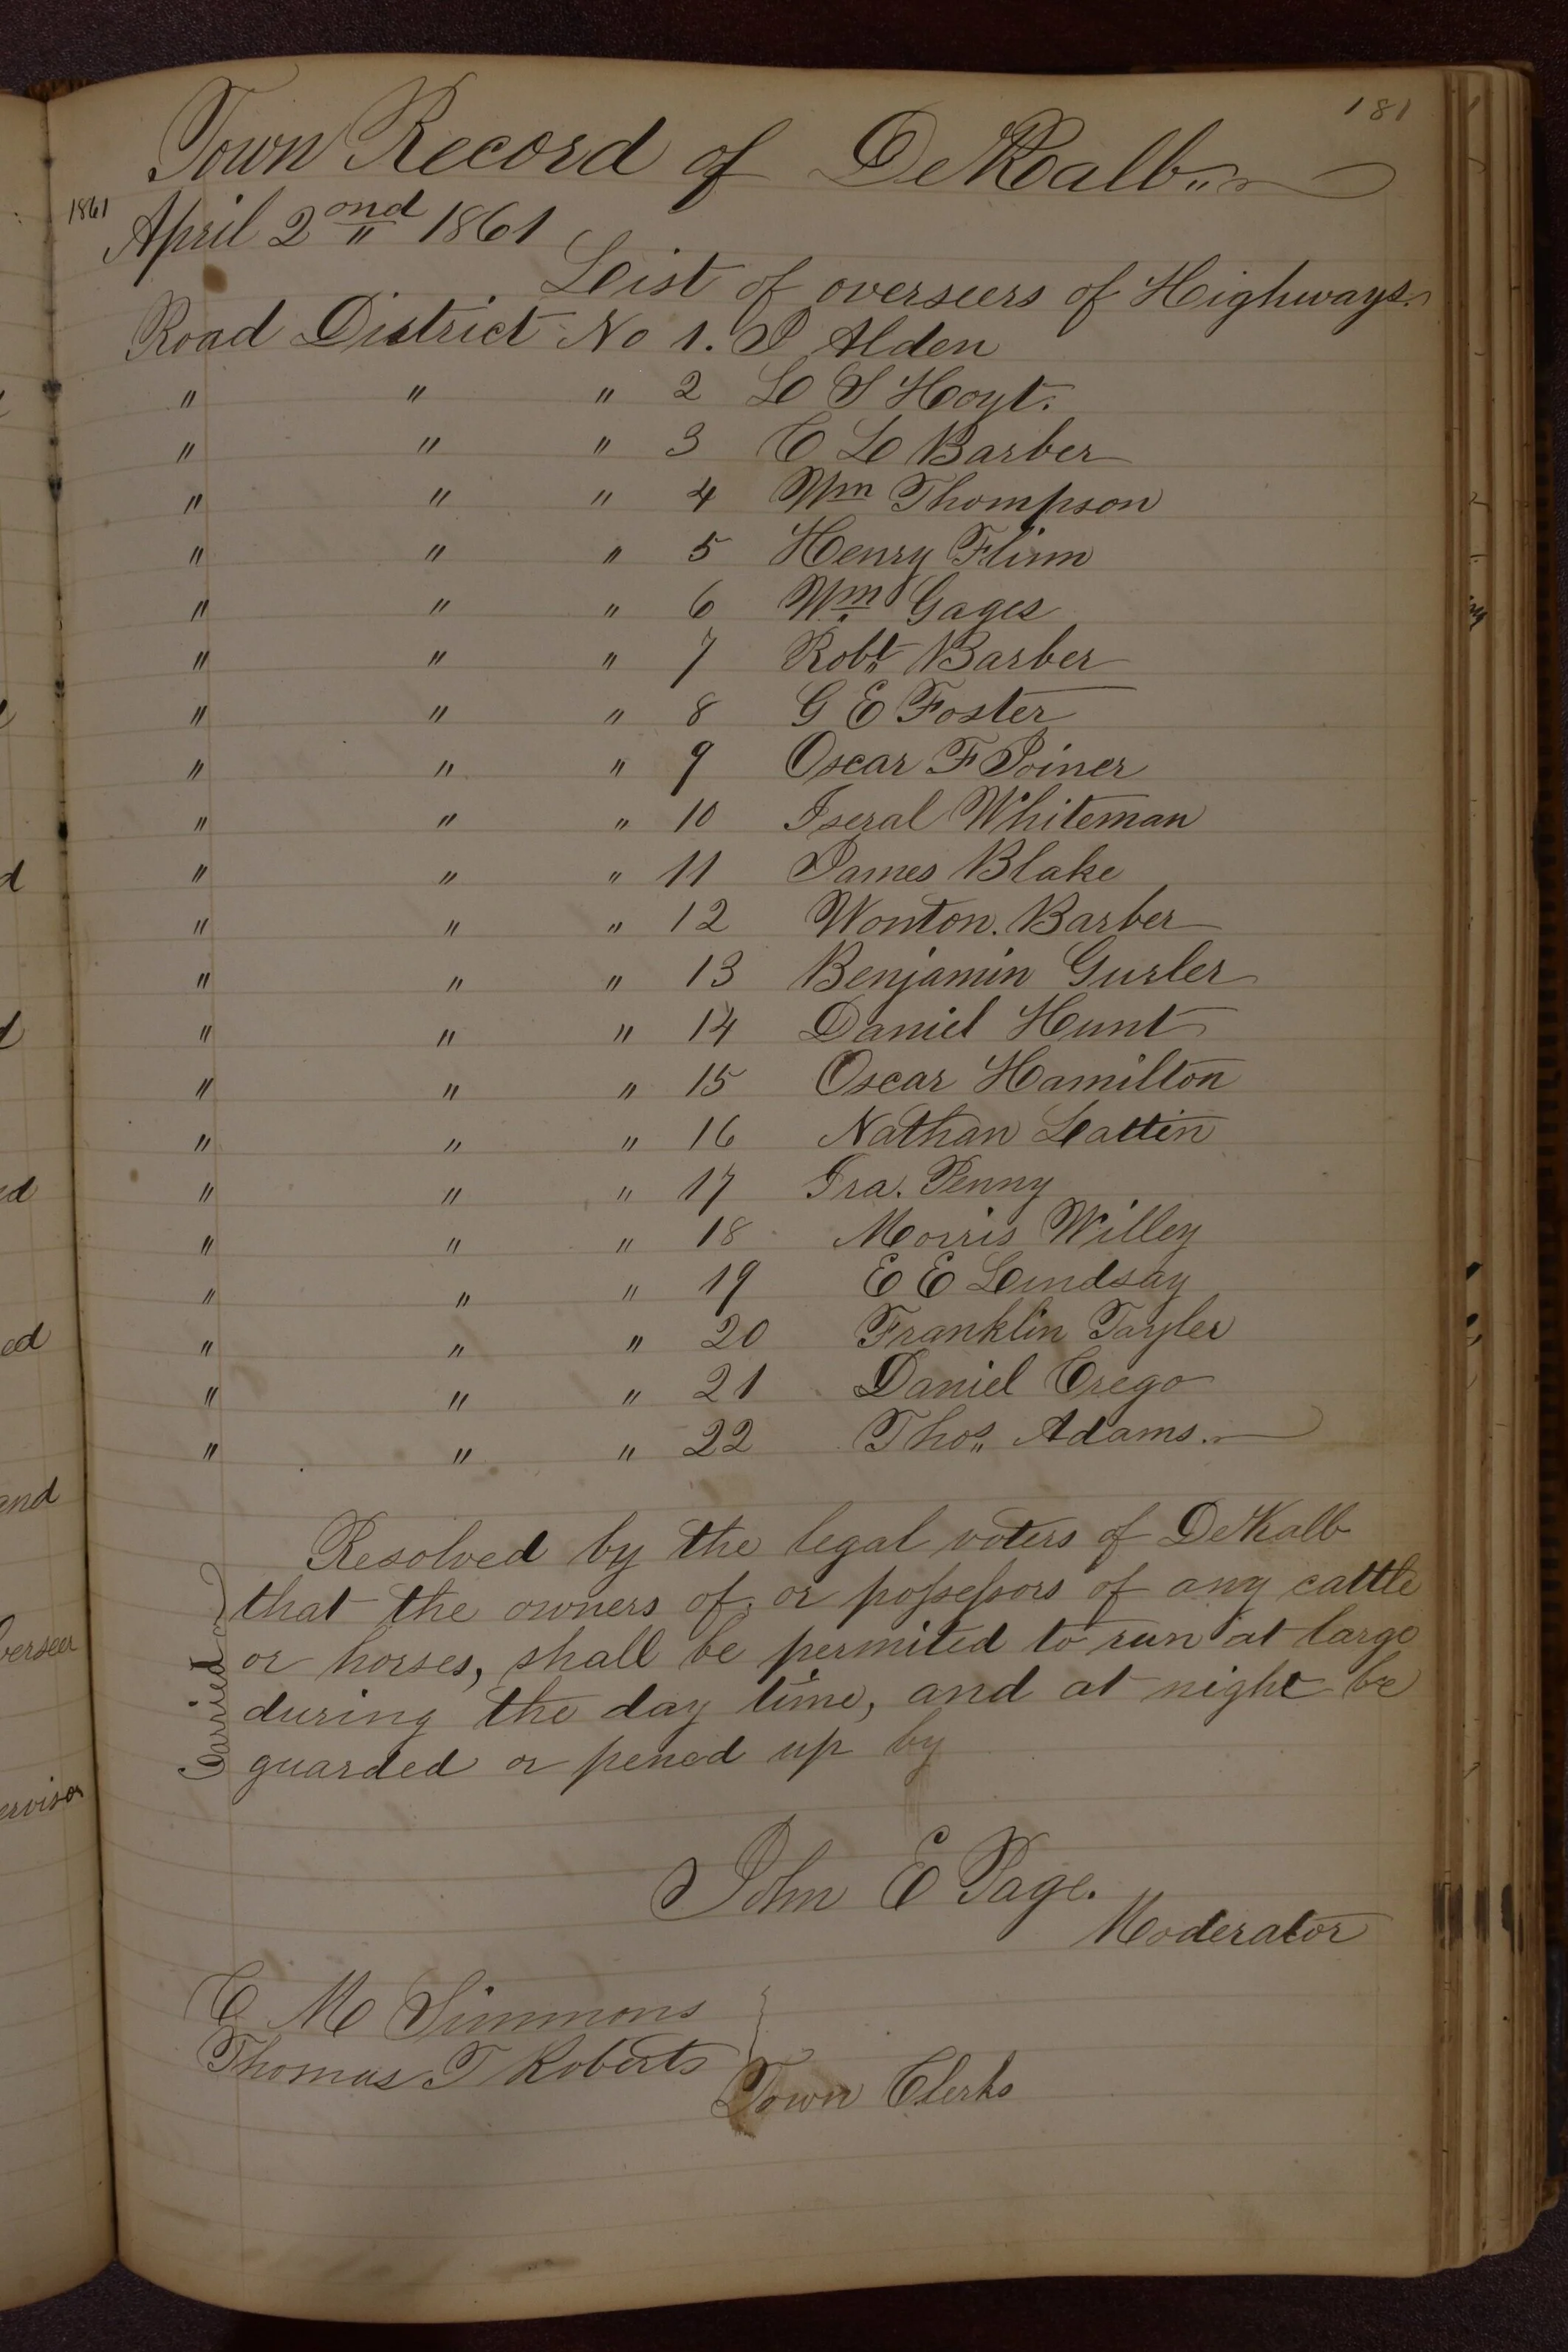 181
Town Record of DeKalb
1861
April 2ond 1861
List of overseers of Highways.
Road District No 1. P Alden
" " " 2 L S Hoyt.
" " " 3 C L Barber
" " " 4 Wm Thompson
" " " 5 Henry Flinn
" " " 6 Wm Gages
" " " 7 Robt Barber
" " " 8 G E Foster
" " " 9 Oscar F Joiner
" " " 10 Iseral Whiteman
" " " 11 James Blake
" " " 12 Wonton. Barber
" " " 13 Benjamin Gurler
" " " 14 Daniel Hunt
" " " 15 Oscar Hamilton
" " " 16 Nathan Lattin
" " " 17 Ira. Penny
" " " 18 Morris Willey
" " " 19 E E Lindsay
" " " 20 Franklin Tayler
" " " 21 Daniel Crego
" " " 22 Thos Adams.
Resolved by the legal voters of DeKalb
that the owners of, or possessors of any cattle
or horses, shall be permited to run at large
during the day time, and at night be
guarded or pened up by
Carried
John E Page.
Moderator
C M Simmons
Thomas T Roberts
Town Clerks